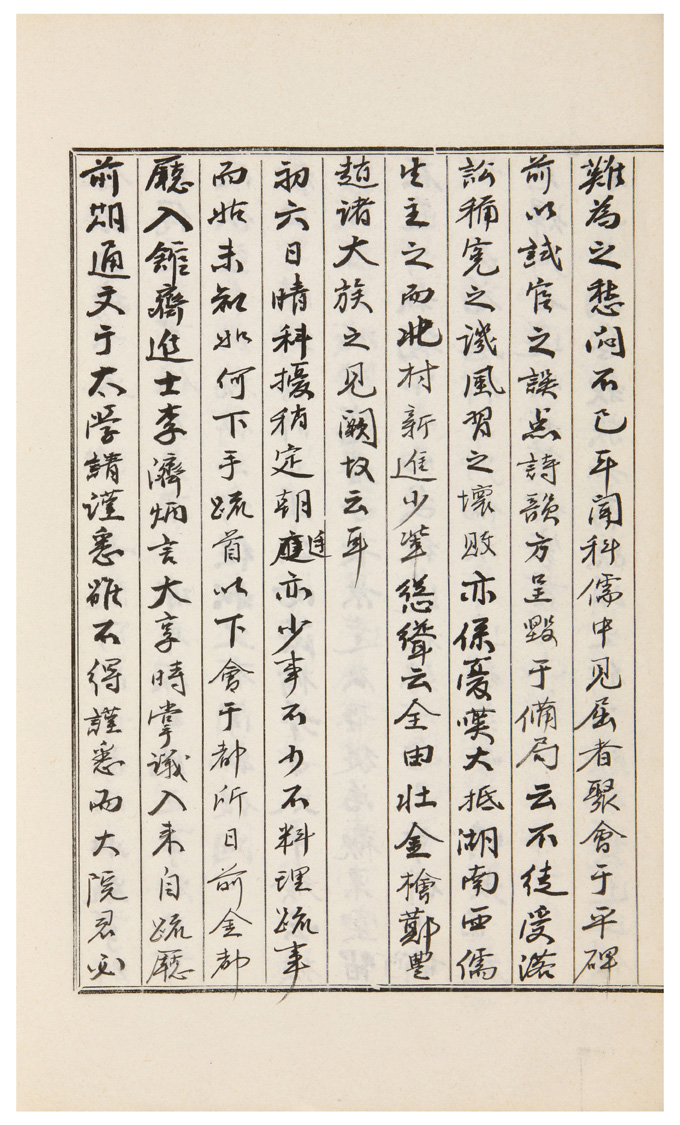 難為之愁悶不已耳聞科儒中見屈者聚會于平碑
前以試官之誤忠詩韻方呈毁于備局云不徒受濫
訟稱寃之譏風習之壞敗亦係憂嘆大抵湖南西儒
生主之而北村新進少輩慫聳云全由壯金檜鄭豊
趙諸大族之見闕故云耳
初六日晴科擾稍定朝庭筵亦少事不少不料理疏事
而姑未知如何下手疏首以下會于都所日前金都
廳入雒齋進士李濟炳言大享時掌議入来自疏廳
前期通文于太學請謹悉雖不得謹悉而大院君必